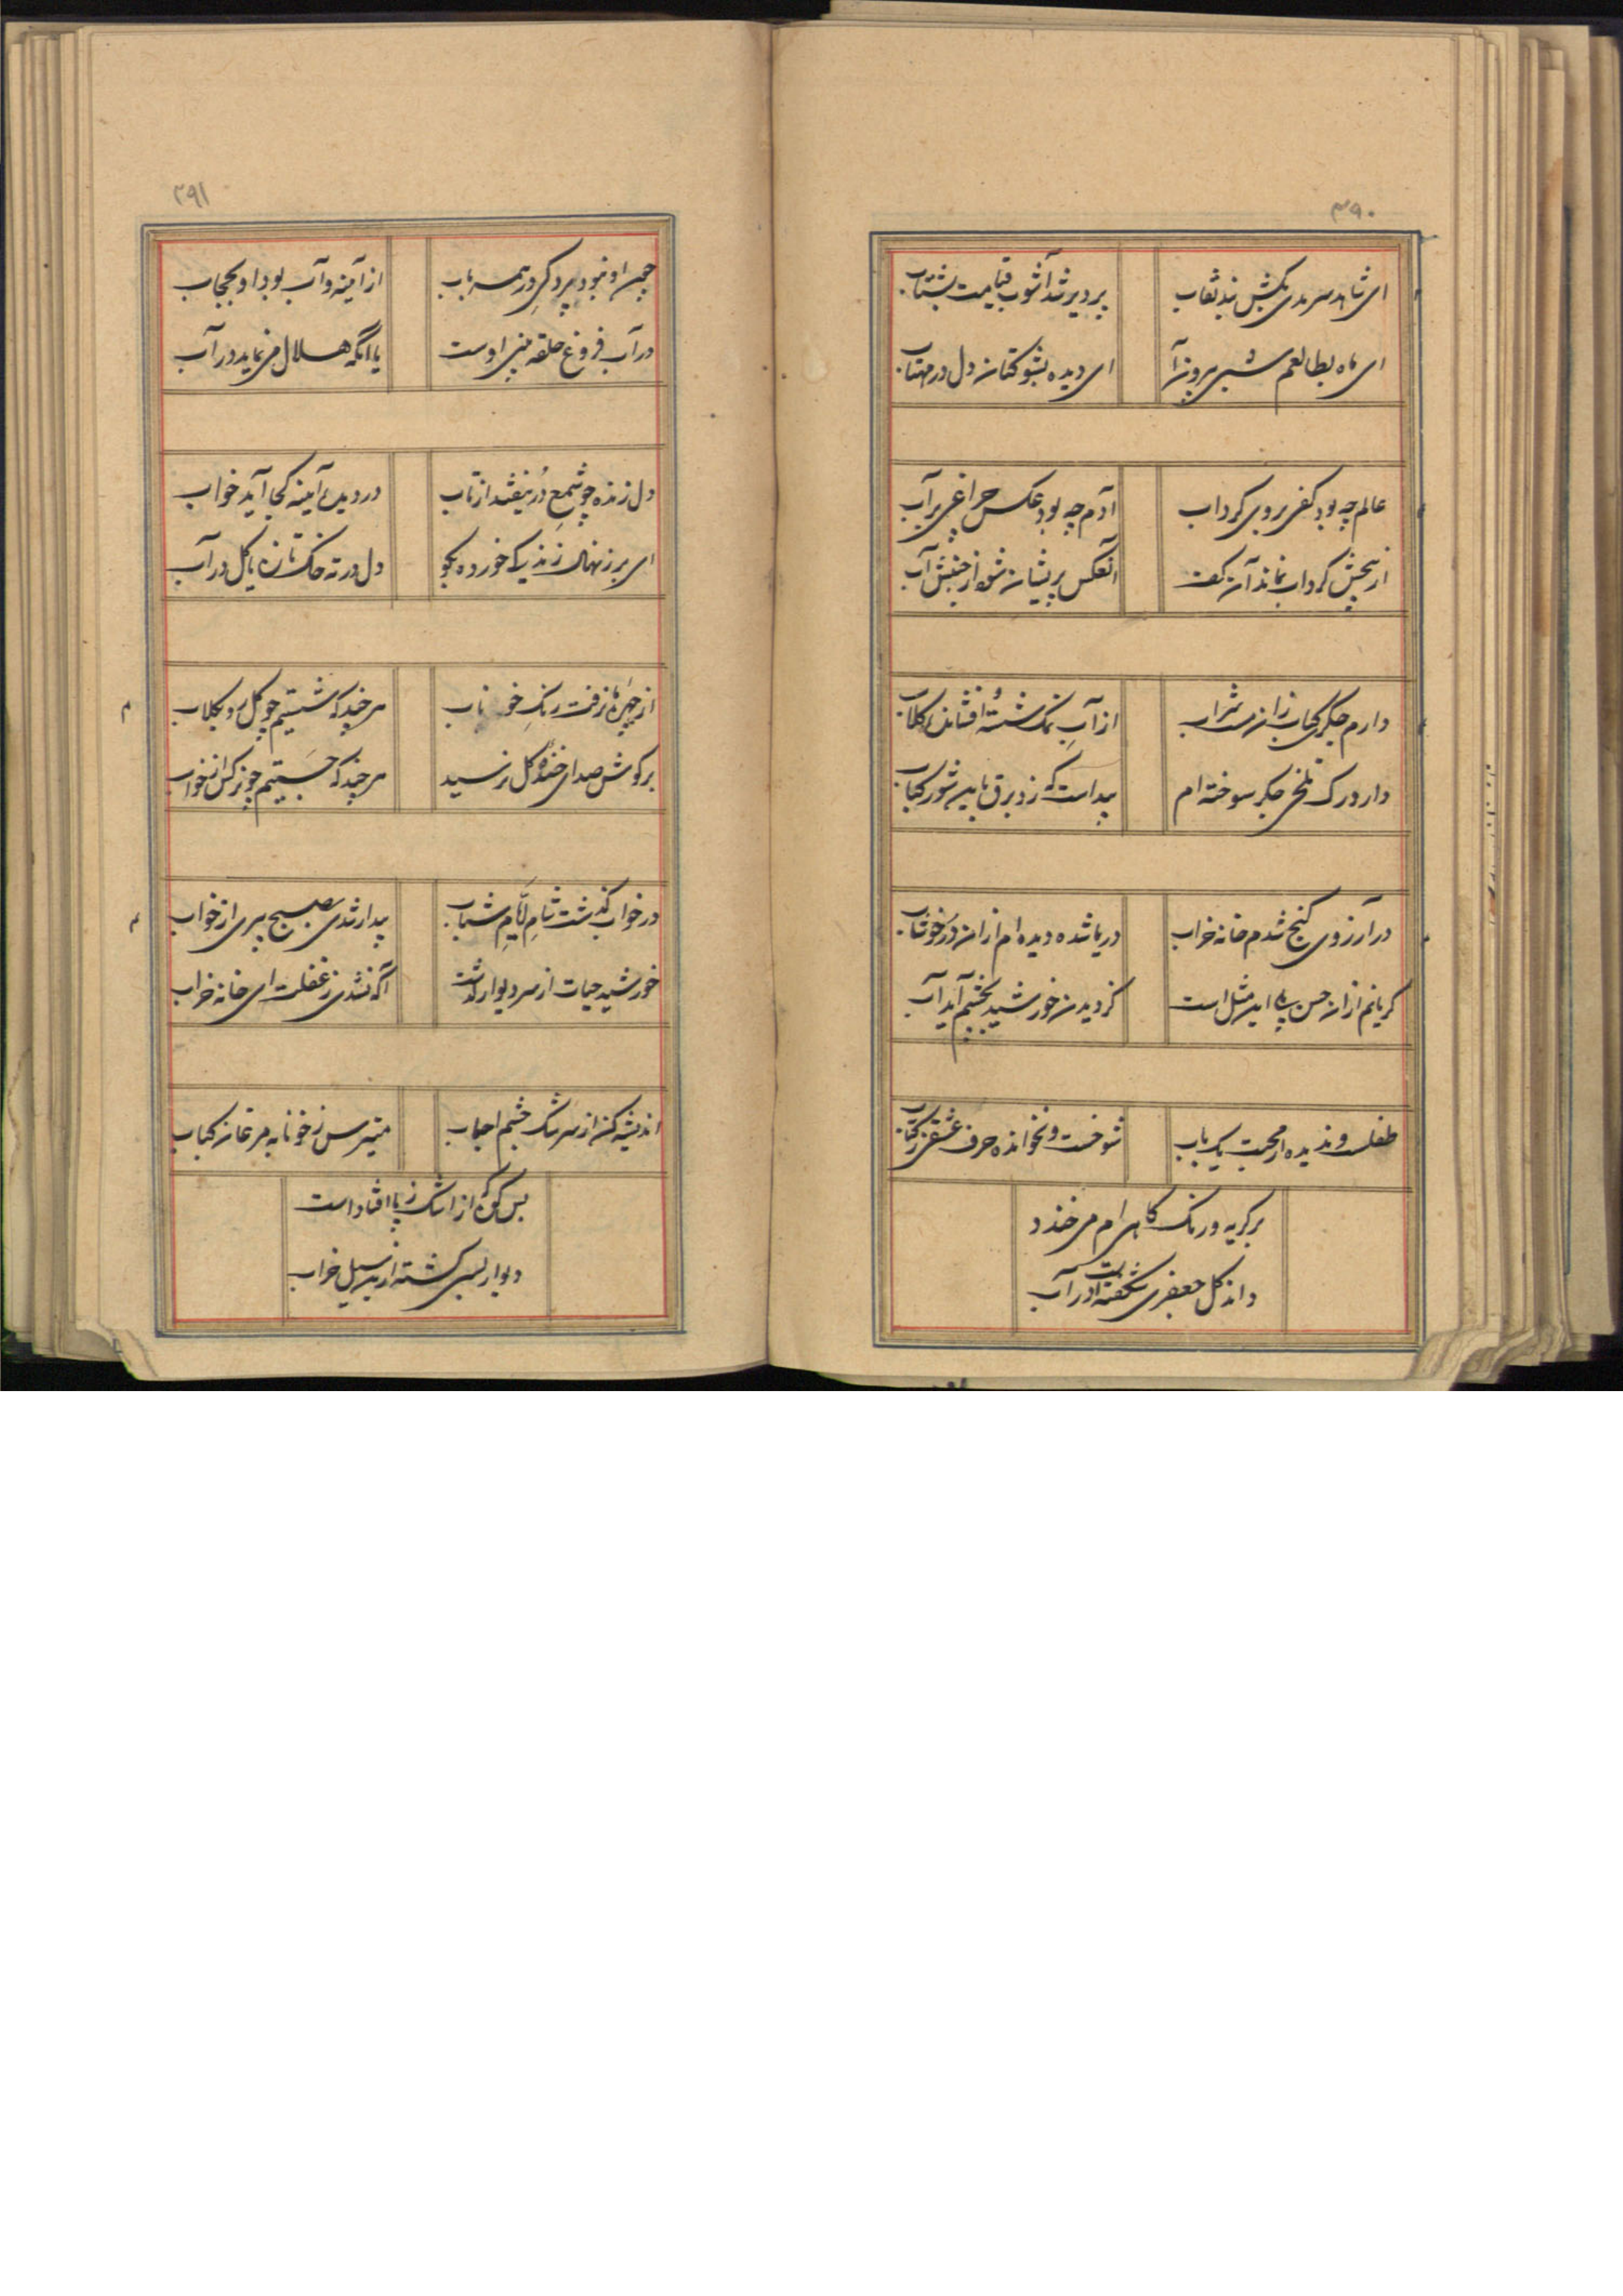 ۳۹۰
ای شاهد سرمدی بکش بند نقاب
پر دیر شد آشوب قیامت بشتاب
ای ماه بطالعم شبی بیرون آ
ای دیده بشو کتان دل در مهتاب
عالم چه بود کفی بروی گرداب
آدم چه بود عکس چراغی بر آب
گرداب نماند آن کف
آنعکس پریشان شود از جنبش آب
دارم جگری کباب زان مست شراب
از آب نمک شسته افشانده گلاب
دارد رگ تلخی جگر سوخته ام
پیداست که زد برق باین شور کباب
در آرزوی گنج شدم خانه خراب
دریا شده دیده ام ازان در خوشاب
گریانم ازان حسن بلی این مثل است
گر دیدن خورشید بچشم آید آب
طفلست و ندیده از محبت یک باب
شوخست و نخوانده حرف عشقی ز کتاب
بر گریه و رنگ کاهی ام می خندد
داند گل جعفری شکفتست در آب
۳۹۱
چون او نبود پردگی در همه باب
از آینه و آب بود او بحجاب
در آب فروغ حلقه بینی اوست
یا آنکه هلال می نماید در آب
دل زنده چو شمع در نیفتد از تاب
در دیدهٔ آیینه کجا آید خواب
ای برزنهال زندگی خورده بگو
دل در ته خاک تازه یا گل در آب
از چهرهٔ ما نرفت رنگ خوناب
هر چند که شستیم چو گل رو بگلاب
بر گوش صدای خندهٔ گل نرسید
هر چند که جستیم چو نرگس از خواب
در خواب گذشت شام ایام شباب
بیدار شدی بصبح پیری از خواب
خورشید حیات از سر دیوار گذشت
آگه نشدی ز غفلت ای خانه خراب
اندیشه کن از سرشک چشم احباب
میترس ز خونابه مرغان کباب
بس کوه از اشک ز پا افتاد است
دیوار بسی گشته ازین سیل خراب